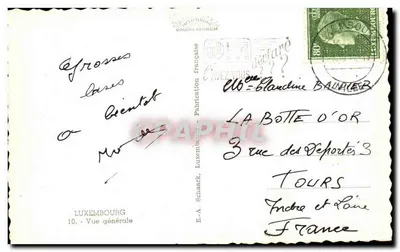 Grosses
bises
a bientot
LUXEMBOURG
10. - Vue générale
E.-A. Schaack, Luxembourg - Fabrication française
80c
Claudine BAUDIER
LA BOTTE D'OR
3 rue des Déportés 3
TOURS
Indre et Loire
France
CPAPHIL